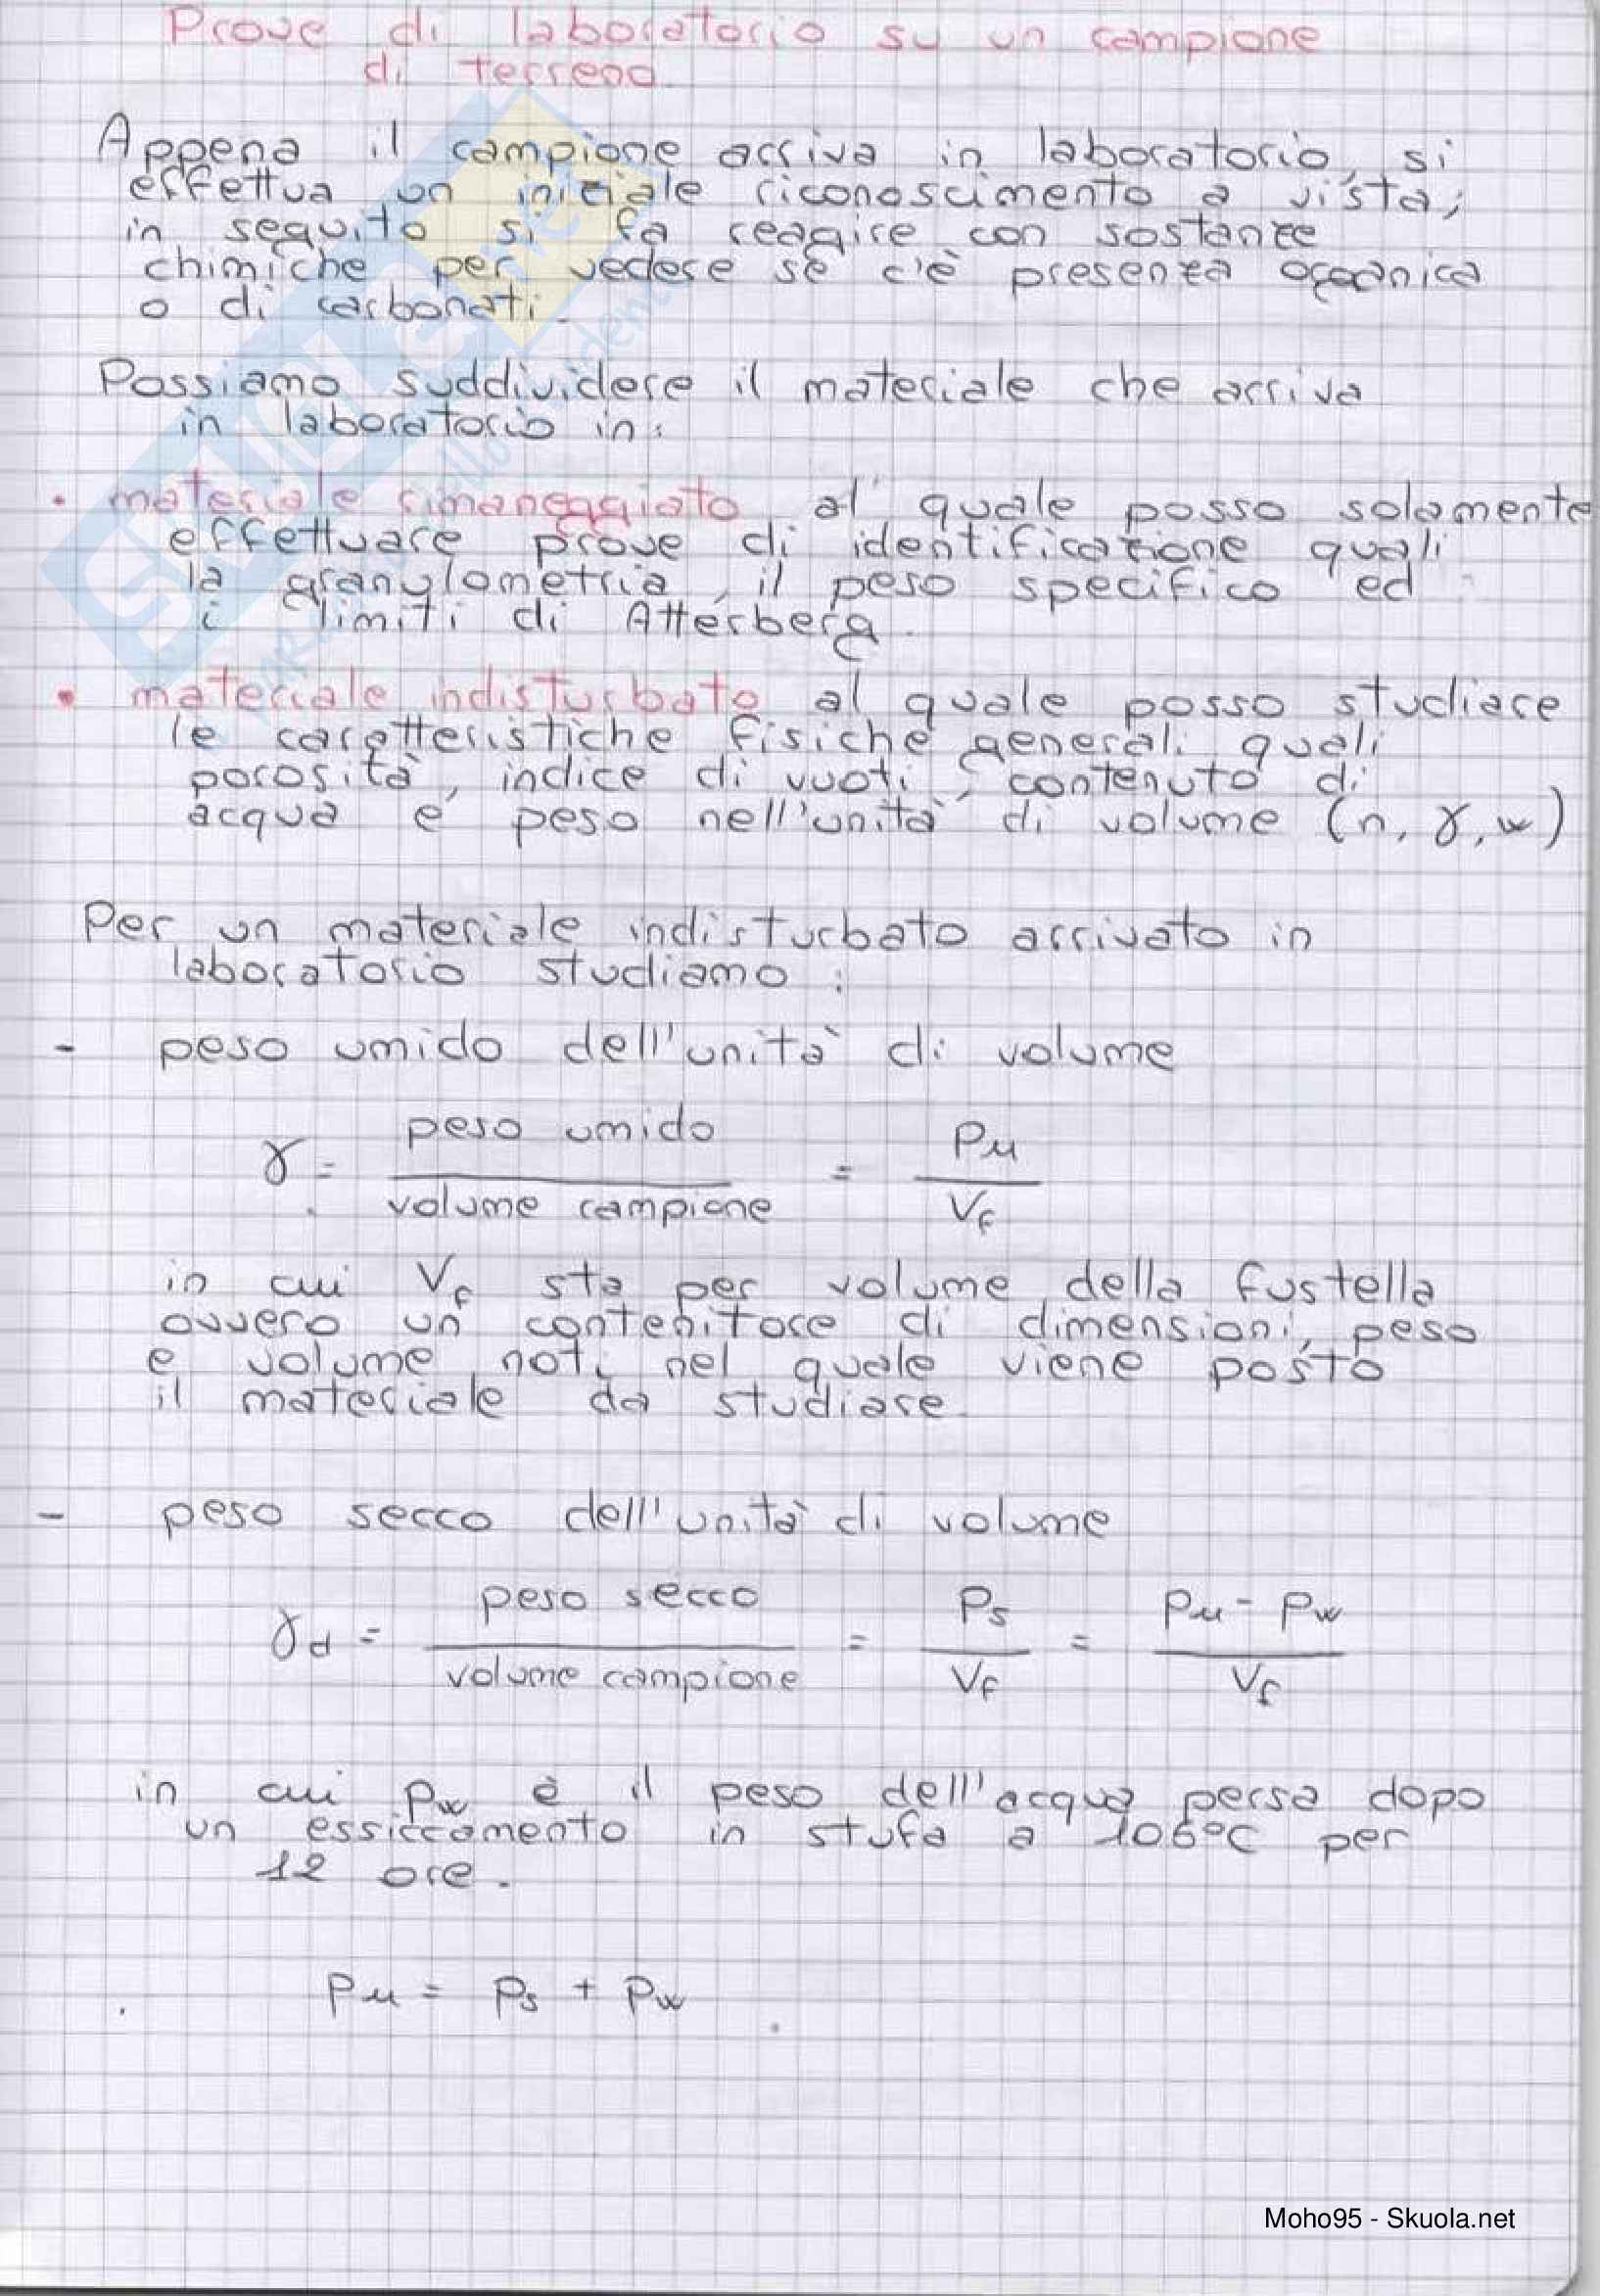 Prove di laboratorio su un campione
di terreno.
Appena il campione arriva in laboratorio, si
effettua un iniziale riconoscimento a vista,
in seguito si fa reagire con sostanze
chimiche per vedere se c'è presenza organica
o di carbonati.
Possiamo suddividere il materiale che arriva
in laboratorio in:
• materiale rimaneggiato al quale posso solamente
effettuare prove di identificazione quali
la granulometria, il peso specifico ed
i limiti di Atterberg.
• materiale indisturbato al quale posso studiare
le caratteristiche fisiche generali quali
porosità, indice di vuoti, contenuto di
acqua e peso nell'unità di volume (n, γ, w)
Per un materiale indisturbato arrivato in
laboratorio studiamo:
- peso umido dell'unità di volume
γ = peso umido / volume campione = Pu / Vf
in cui Vf sta per volume della fustella
ovvero un contenitore di dimensioni, peso
e volume noti nel quale viene posto
il materiale da studiare.
- peso secco dell'unità di volume
γd = peso secco / volume campione = Ps / Vf = Pu - Pw / Vf
in cui Pw è il peso dell'acqua persa dopo
un essiccamento in stufa a 106°C per
12 ore.
Pu = Ps + Pw
Moho95 - Skuola.net